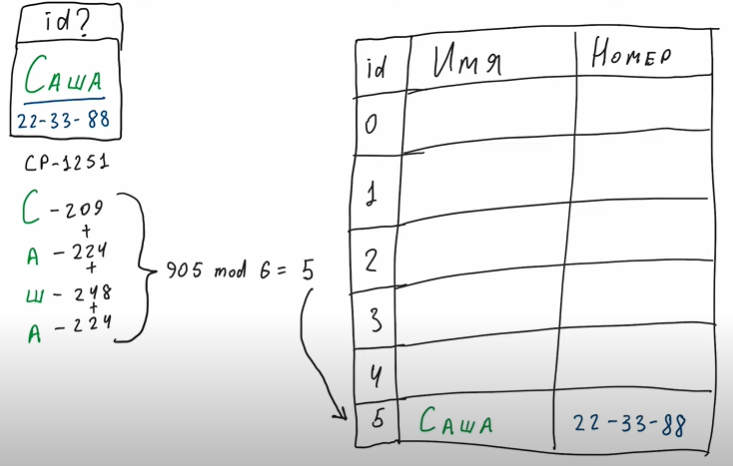 id?
Саша
22-33-88
CP-1251
С - 209
+
А - 224
+
Ш - 248
+
А - 224
905 mod 6 = 5
id Имя Номер
0
1
2
3
4
5 Саша 22-33-88